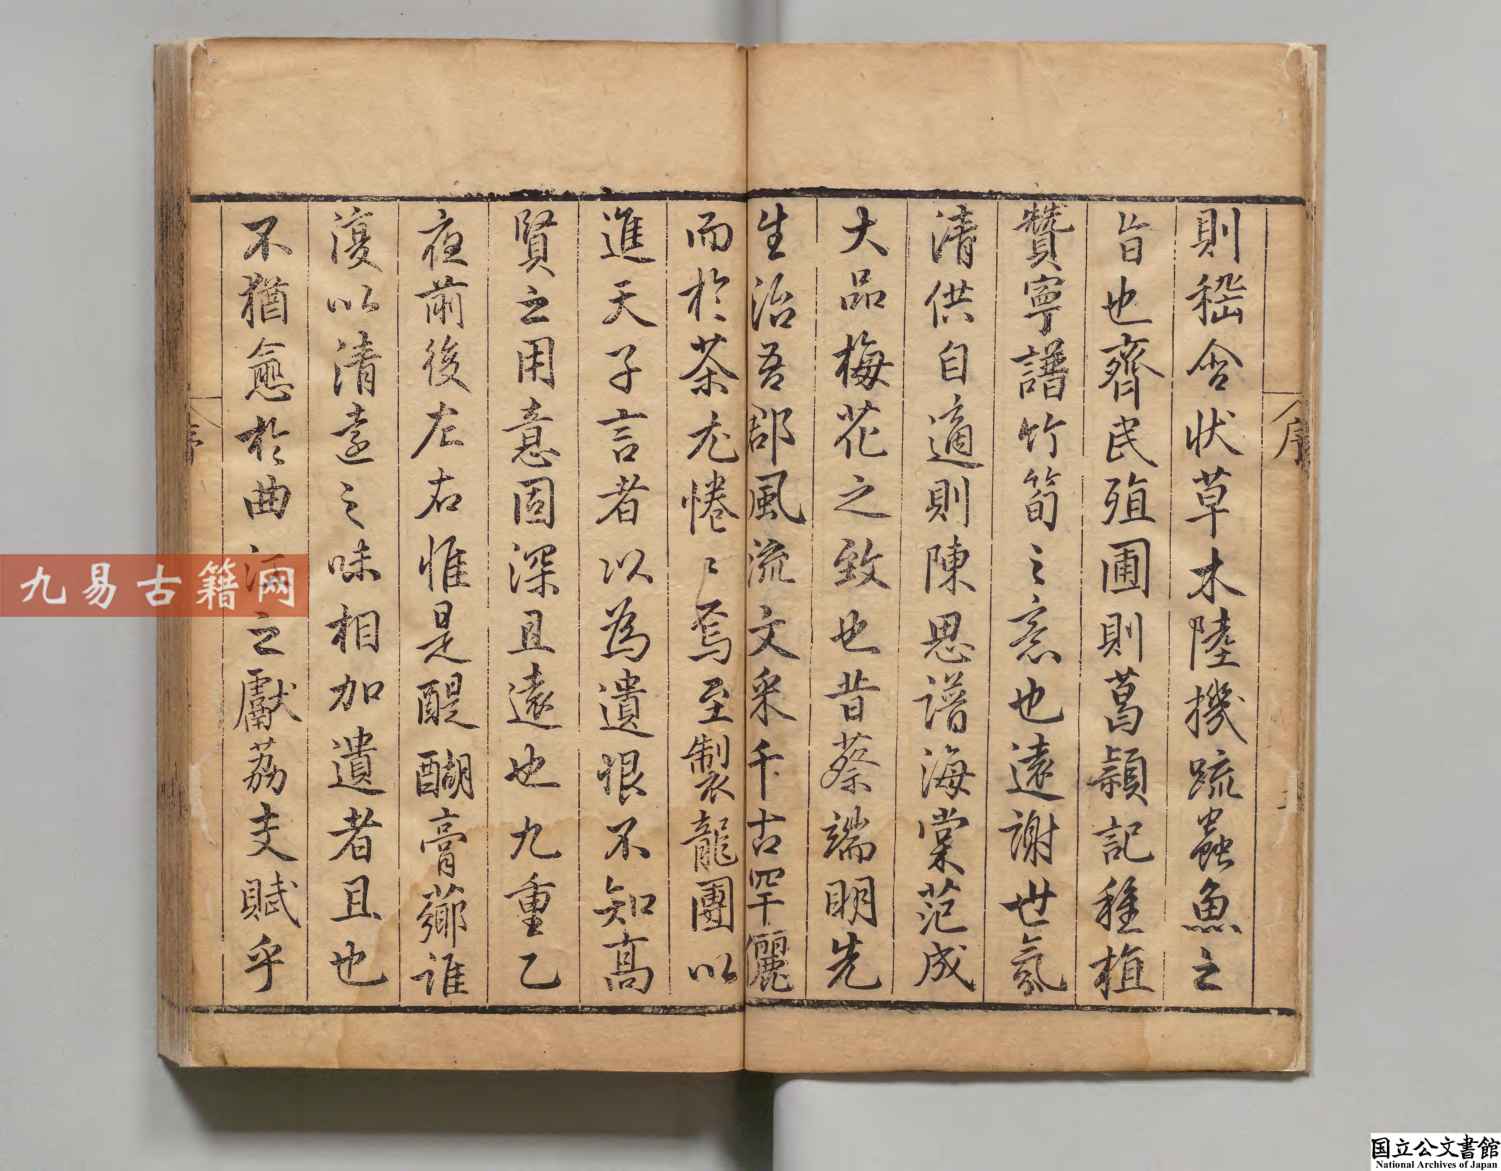 則嵇含狀草木陸機疏蟲魚之
旨也齊民殖圃則葛穎記種植
贊寧譜竹筍之意也遠謝世氛
清供自適則陳思譜海棠范成
大品梅花之致也昔蔡端明先
生治吾郡風流文采千古罕儷
而於茶尤惓〻焉至製龍團以
進天子言者以為遺恨不知高
賢之用意固深且遠也九重乙
夜前後左右惟是醍醐膏薌誰
復以清遠之味相加遺者且也
不猶愈於曲江之獻荔支賦乎
序
九易古籍网
国立公文書館
National Archives of Japan